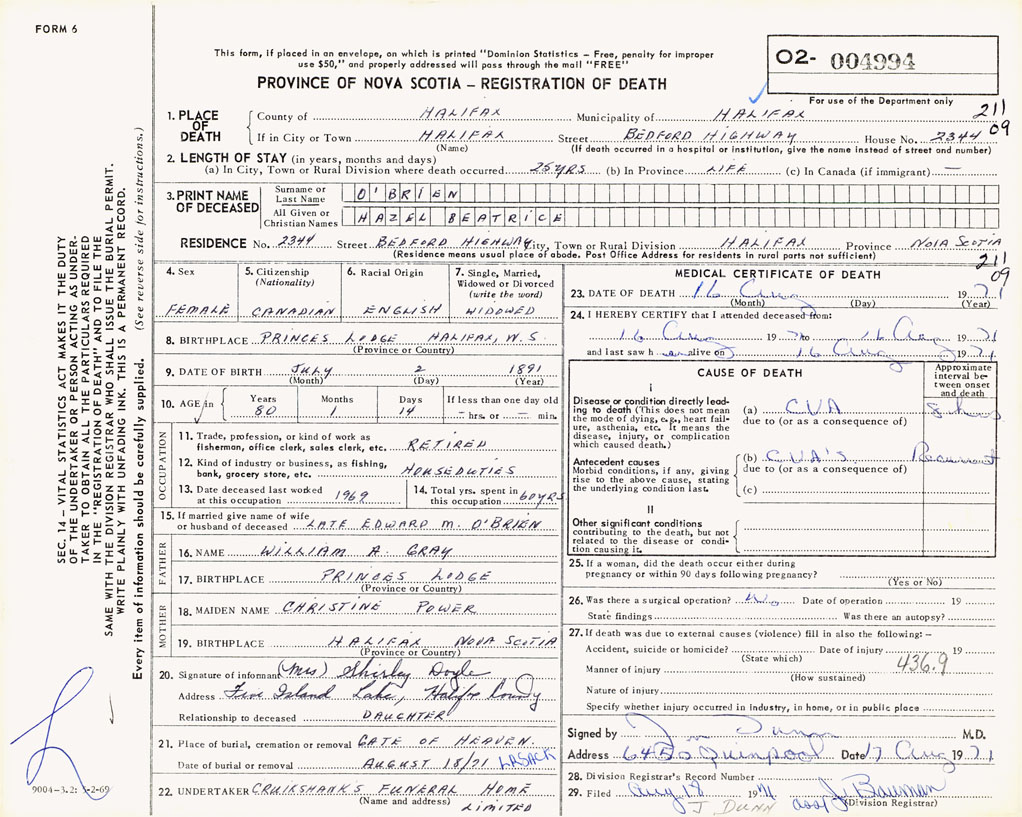 FORM 6
This form, if placed in an envelope, on which is printed "Dominion Statistics – Free, penalty for improper
use $50," and properly addressed will pass through the mail "FREE"
02- 004994
PROVINCE OF NOVA SCOTIA – REGISTRATION OF DEATH
For use of the Department only
211
09
1. PLACE OF DEATH
County of HALIFAX Municipality of HALIFAX
If in City or Town HALIFAX Street BEDFORD HIGHWAY House No. 2344
(Name) (If death occurred in a hospital or institution, give the name instead of street and number)
2. LENGTH OF STAY (in years, months and days)
(a) In City, Town or Rural Division where death occurred 25 YRS (b) In Province LIFE (c) In Canada (if immigrant) —
3. PRINT NAME OF DECEASED
Surname or Last Name O'BRIEN
All Given or Christian Names HAZEL BEATRICE
RESIDENCE No. 2344 Street BEDFORD HIGHWAY City, Town or Rural Division HALIFAX Province NOVA SCOTIA
(Residence means usual place of abode. Post Office Address for residents in rural parts not sufficient)
211
09
4. Sex
FEMALE
5. Citizenship
(Nationality)
CANADIAN
6. Racial Origin
ENGLISH
7. Single, Married,
Widowed or Divorced
(write the word)
WIDOWED
8. BIRTHPLACE PRINCES LODGE HALIFAX, N.S.
(Province or Country)
9. DATE OF BIRTH JULY 2 1891
(Month) (Day) (Year)
10. AGE in Years Months Days If less than one day old
80 1 14 – hrs. or — min.
OCCUPATION
11. Trade, profession, or kind of work as
fisherman, office clerk, sales clerk, etc. RETIRED
12. Kind of industry or business, as fishing,
bank, grocery store, etc. HOUSEDUTIES
13. Date deceased last worked
at this occupation 1969
14. Total yrs. spent in
this occupation 60 YRS
15. If married give name of wife
or husband of deceased LATE EDWARD M. O'BRIEN
FATHER
16. NAME WILLIAM A. GRAY
17. BIRTHPLACE PRINCES LODGE
(Province or Country)
MOTHER
18. MAIDEN NAME CHRISTINE POWER
19. BIRTHPLACE HALIFAX NOVA SCOTIA
(Province or Country)
20. Signature of informant (Mrs) Shirley Doyle
Address Five Island Lake, Halifax County
Relationship to deceased DAUGHTER
21. Place of burial, cremation or removal GATE OF HEAVEN
Date of burial or removal AUGUST 18/71 LR SACK
22. UNDERTAKER CRUIKSHANKS FUNERAL HOME
(Name and address) LIMITED
MEDICAL CERTIFICATE OF DEATH
23. DATE OF DEATH 16 Aug 1971
(Month) (Day) (Year)
24. I HEREBY CERTIFY that I attended deceased from:
16 Aug 19 to 16 Aug 1971
and last saw h er alive on 16 Aug 1971
CAUSE OF DEATH
Approximate interval between onset and death
I
Disease or condition directly leading to death (This does not mean the mode of dying, e.g., heart failure, asthenia, etc. It means the disease, injury, or complication which caused death.)
(a) CVA 8 hrs
due to (or as a consequence of)
Antecedent causes
Morbid conditions, if any, giving rise to the above cause, stating the underlying condition last.
(b) CVA'S Recurrent
due to (or as a consequence of)
(c)
II
Other significant conditions
contributing to the death, but not related to the disease or condition causing it.
25. If a woman, did the death occur either during
pregnancy or within 90 days following pregnancy?
(Yes or No)
26. Was there a surgical operation? No Date of operation 19
State findings Was there an autopsy?
27. If death was due to external causes (violence) fill in also the following: –
Accident, suicide or homicide? Date of injury 19
(State which) 436.9
Manner of injury
(How sustained)
Nature of injury
Specify whether injury occurred in industry, in home, or in public place
Signed by M.D.
Address 6450 Quinpool Date 17 Aug 1971
28. Division Registrar's Record Number
29. Filed Aug 18 1971 J. Bauman
J DUNN (Division Registrar)
SEC. 14 – VITAL STATISTICS ACT MAKES IT THE DUTY
OF THE UNDERTAKER OR PERSON ACTING AS UNDER-
TAKER TO OBTAIN ALL THE PARTICULARS REQUIRED
IN THE "REGISTRATION OF DEATH" AND TO FILE THE
SAME WITH THE DIVISION REGISTRAR WHO SHALL ISSUE THE BURIAL PERMIT.
WRITE PLAINLY WITH UNFADING INK. THIS IS A PERMANENT RECORD.
Every item of information should be carefully supplied. (See reverse side for instructions.)
9004-3.2: -2-69